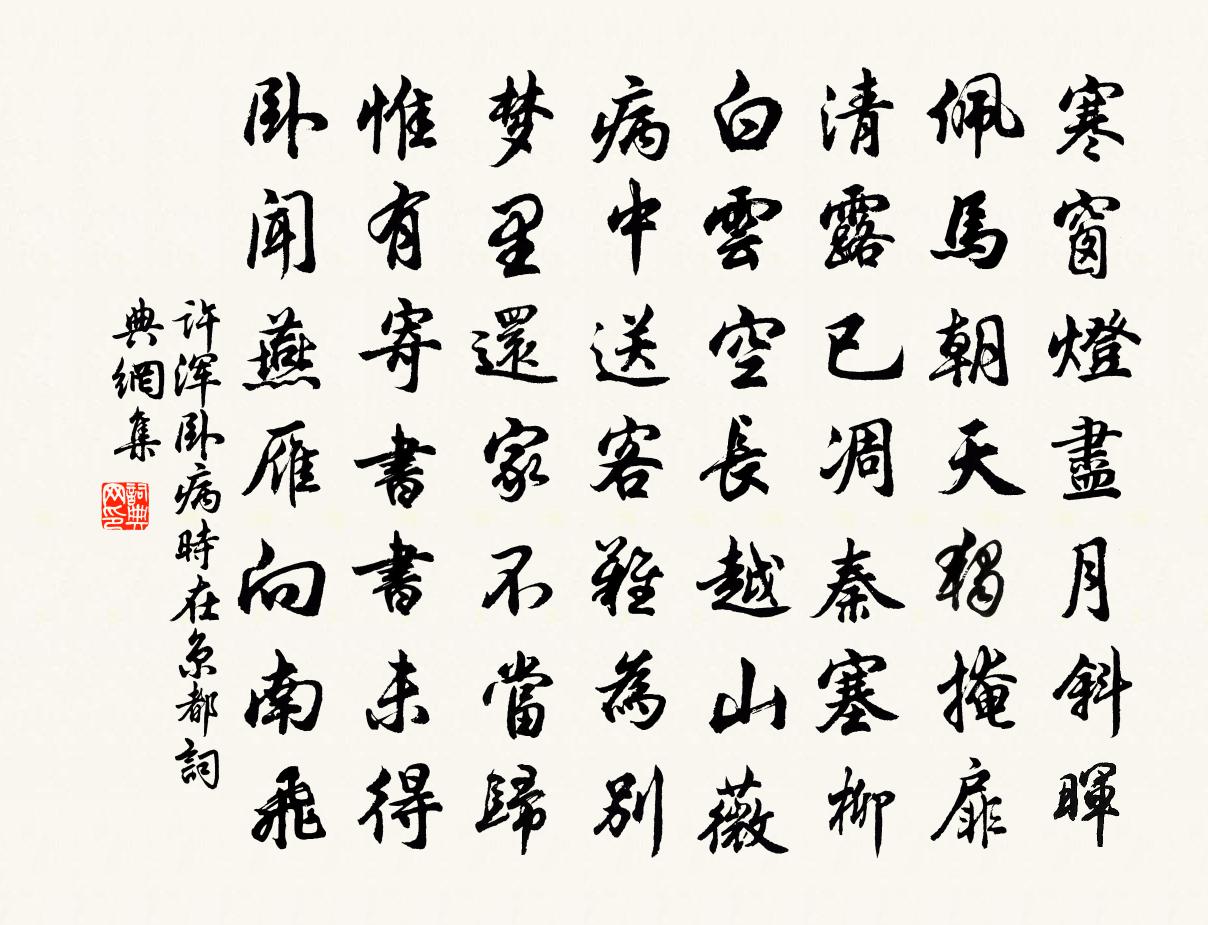 寒窗燈盡月斜暉
佩馬朝天獨掩扉
清露已凋秦塞柳
白雲空長越山薇
病中送客難為別
梦里還家不當歸
惟有寄書書未得
卧聞燕雁向南飛
许浑卧病時在京都詞
典網集
詞典
网印